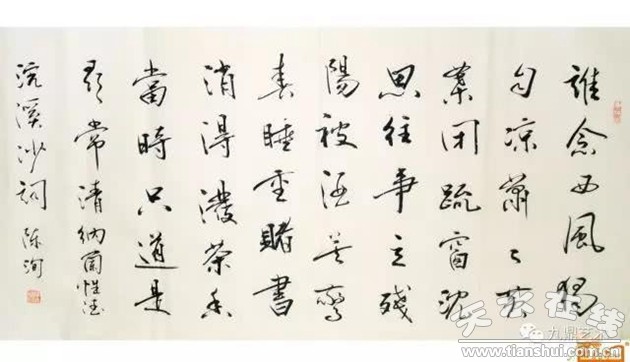 誰念西風獨
自凉蕭々黄
葉閉疏窗沈
思往事立殘
陽被酒莫驚
春睡重賭書
消得潑茶香
當時只道是
尋常清納蘭性德
浣溪沙詞 陈洵
天水在线
九鼎艺术
www.tianshui.com.cn